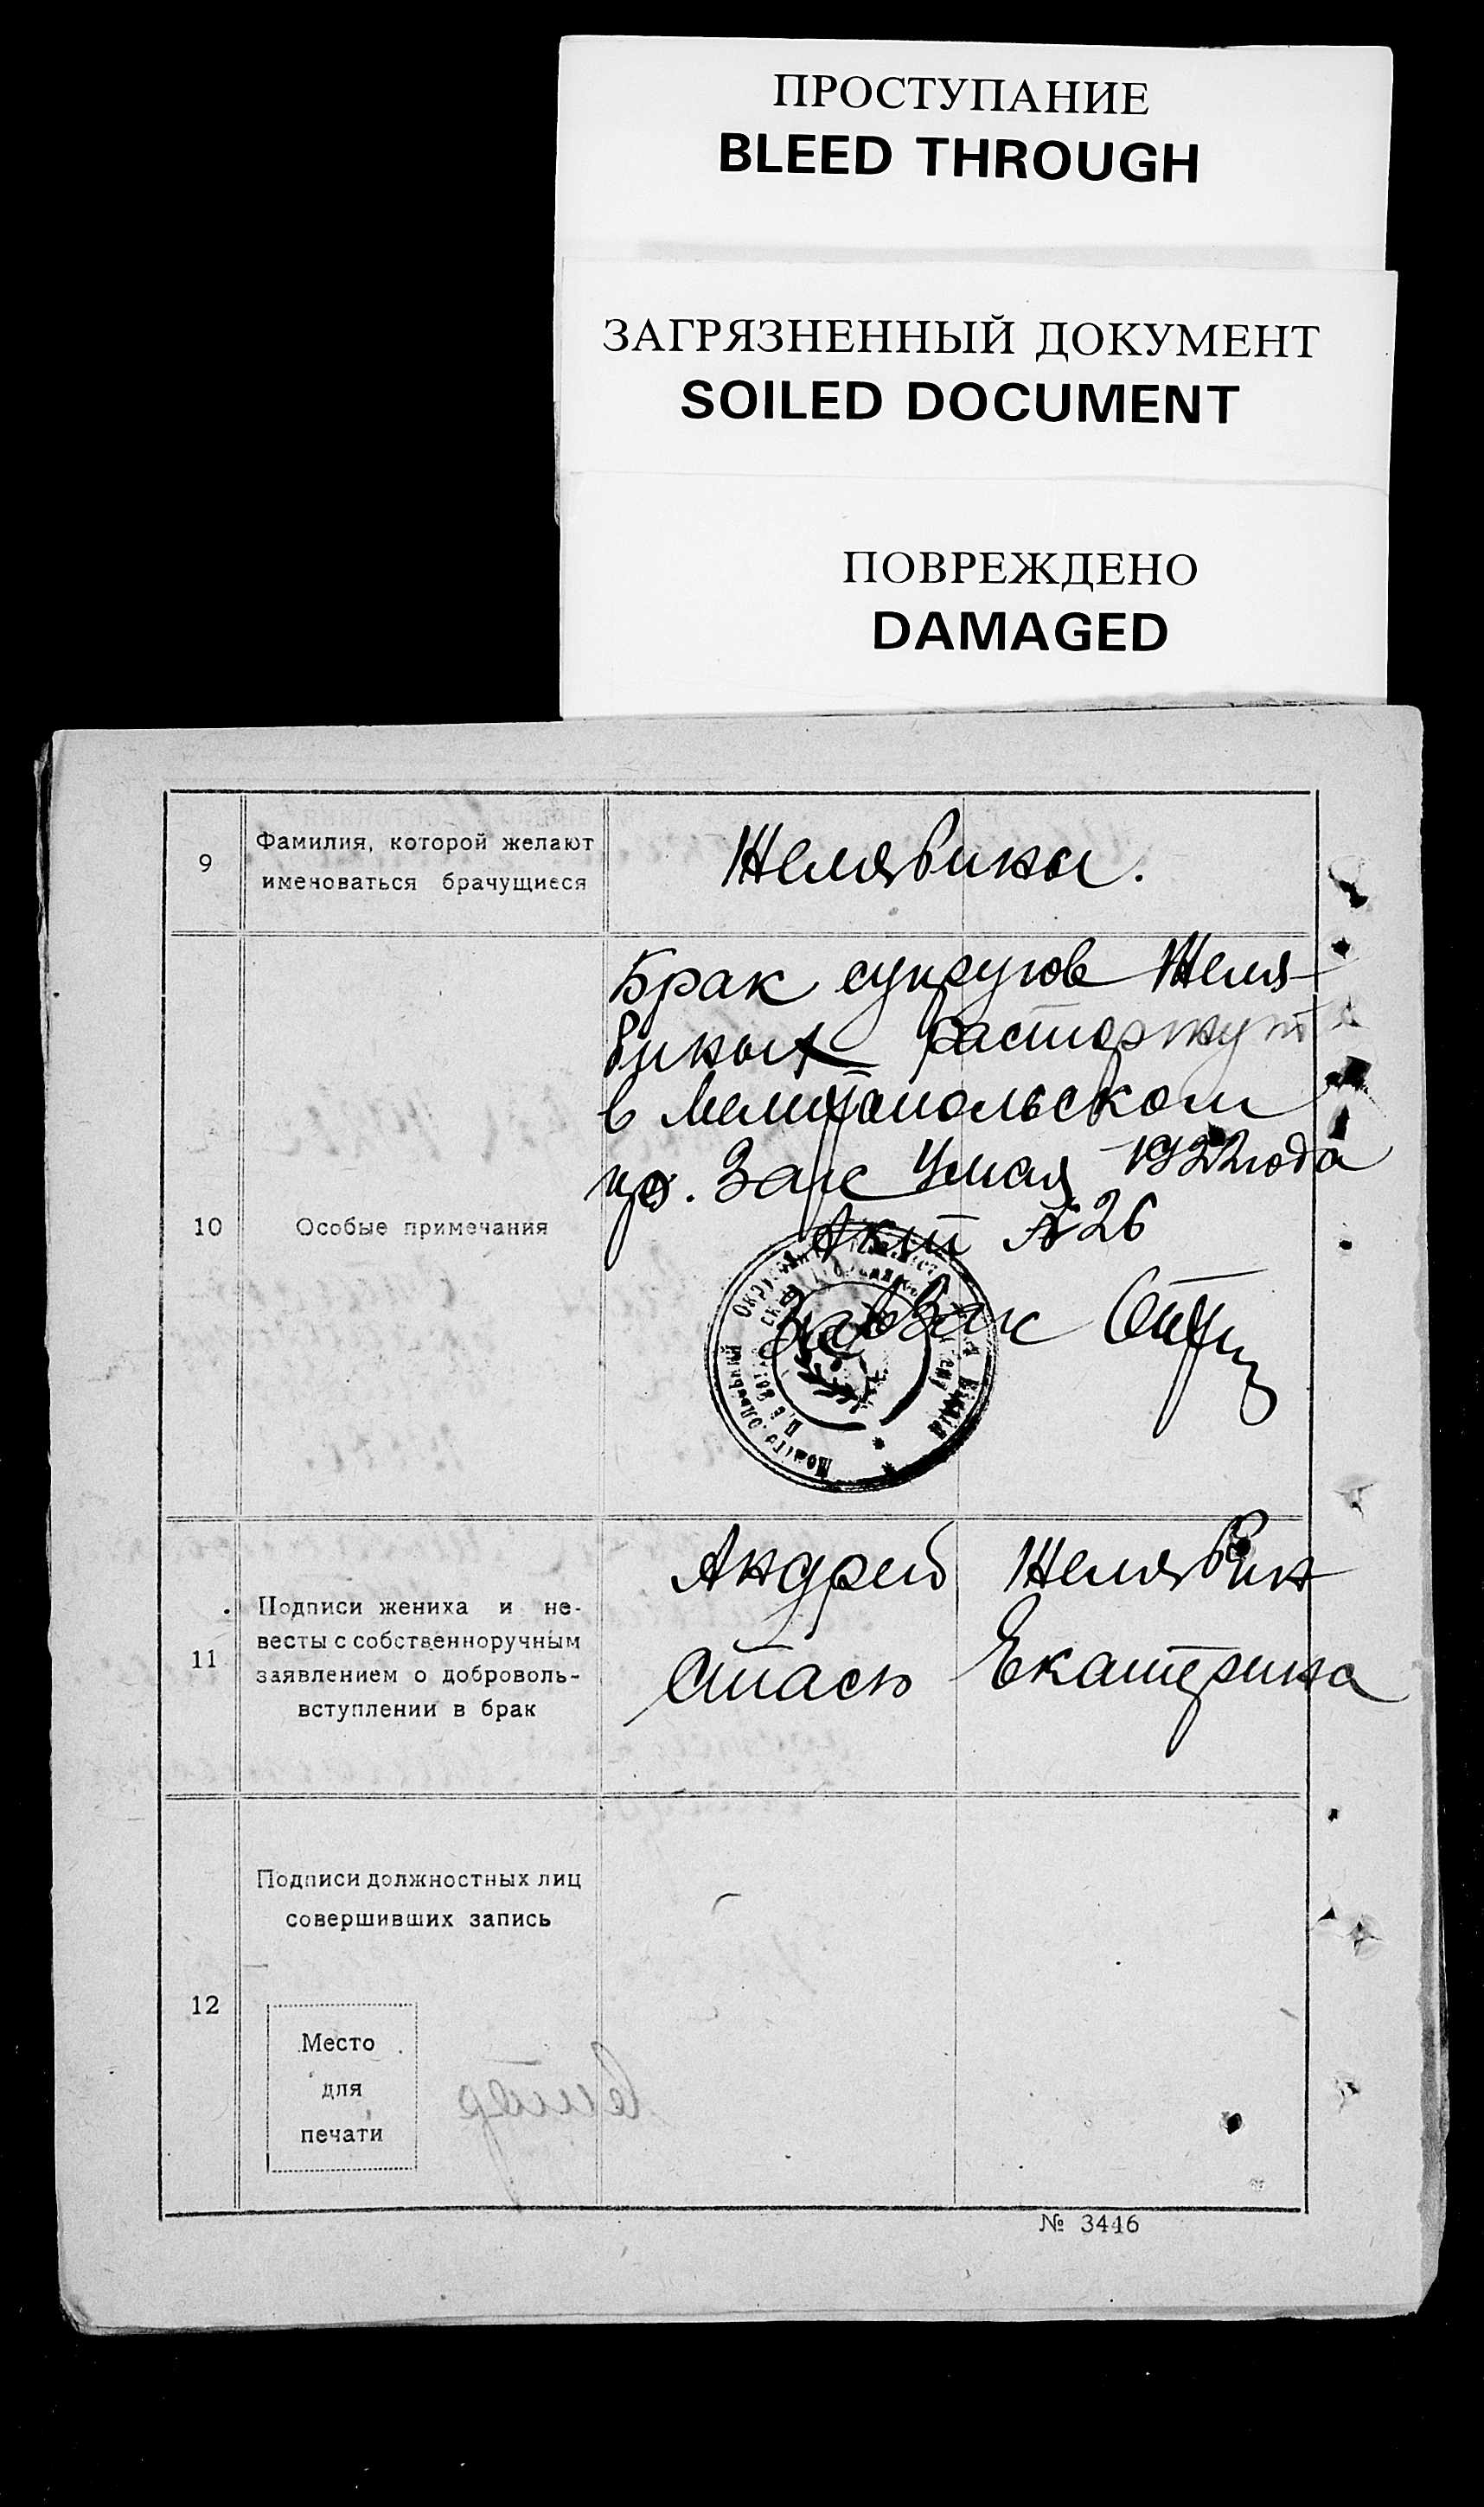 ПРОСТУПАНИЕ
BLEED THROUGH
ЗАГРЯЗНЕННЫЙ ДОКУМЕНТ
SOILED DOCUMENT
ПОВРЕЖДЕНО
DAMAGED
9
Фамилия, которой желают
именоваться брачущиеся
Желявины.
10
Особые примечания
Брак супругов Желя-
виных расторжут
в Мелитопольском
Загс 4 мая 1922 года
Акт № 26
ЗавЗагс
11
Подписи жениха и не-
весты с собственноручным
заявлением о доброволь-
вступлении в брак
Андрей Желявин
Стасю Екатерина
12
Подписи должностных лиц
совершивших запись
Место
для
печати
№ 3446